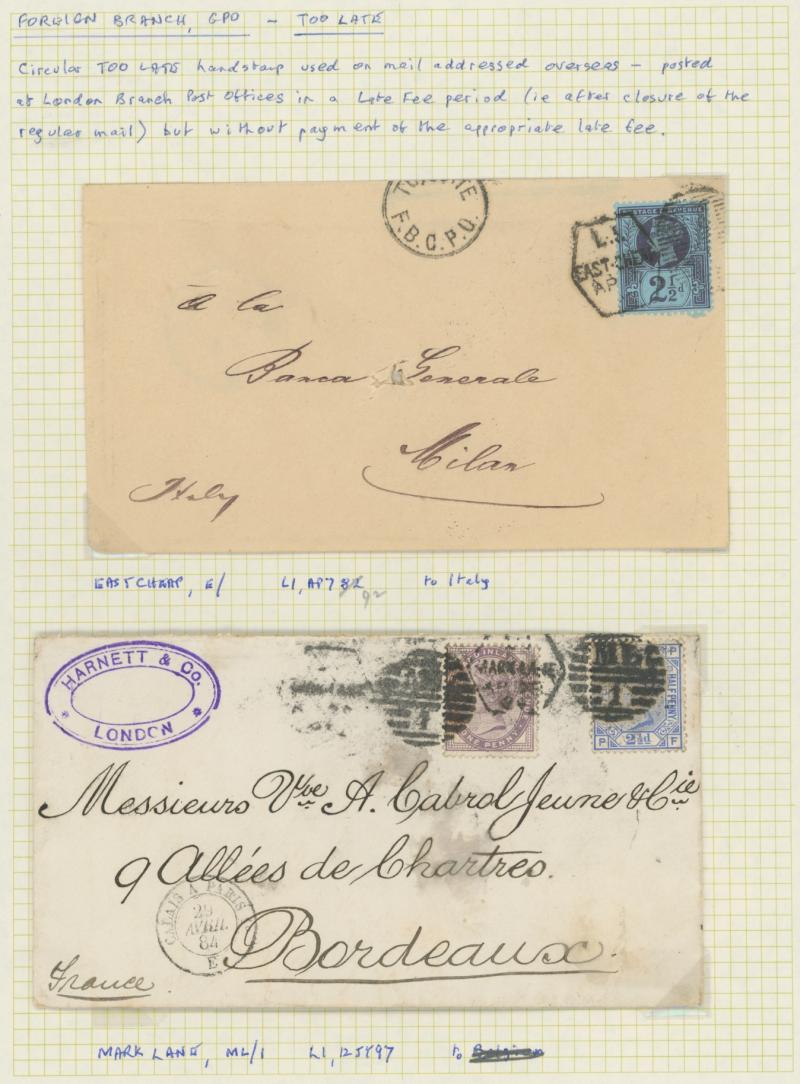 FOREIGN BRANCH, GPO - TOO LATE
Circular TOO LATE handstamp used on mail addressed overseas - posted
at London Branch Post Offices in a Late Fee period (ie after closure of the
regular mail) but without payment of the appropriate late fee.
F.B.G.P.O.
POSTAGE & REVENUE
L.1
EAST-CHEAP
AP
2½d
à la
Banca Generale
Milan
Italy
EASTCHEAP, E/ L1, AP7 82 to Italy
92
HARNETT & Co.
LONDON
MARK LANE
INLAND
ONE PENNY
1
1
HALFPENNY
P
2½d
P F
Messieurs Vve A. Cabrol Jeune & Cie
9 Allées de Chartres.
CALAIS A PARIS
29
AVRIL
84
E
Bordeaux.
France
MARK LANE, ML/1 L1, to